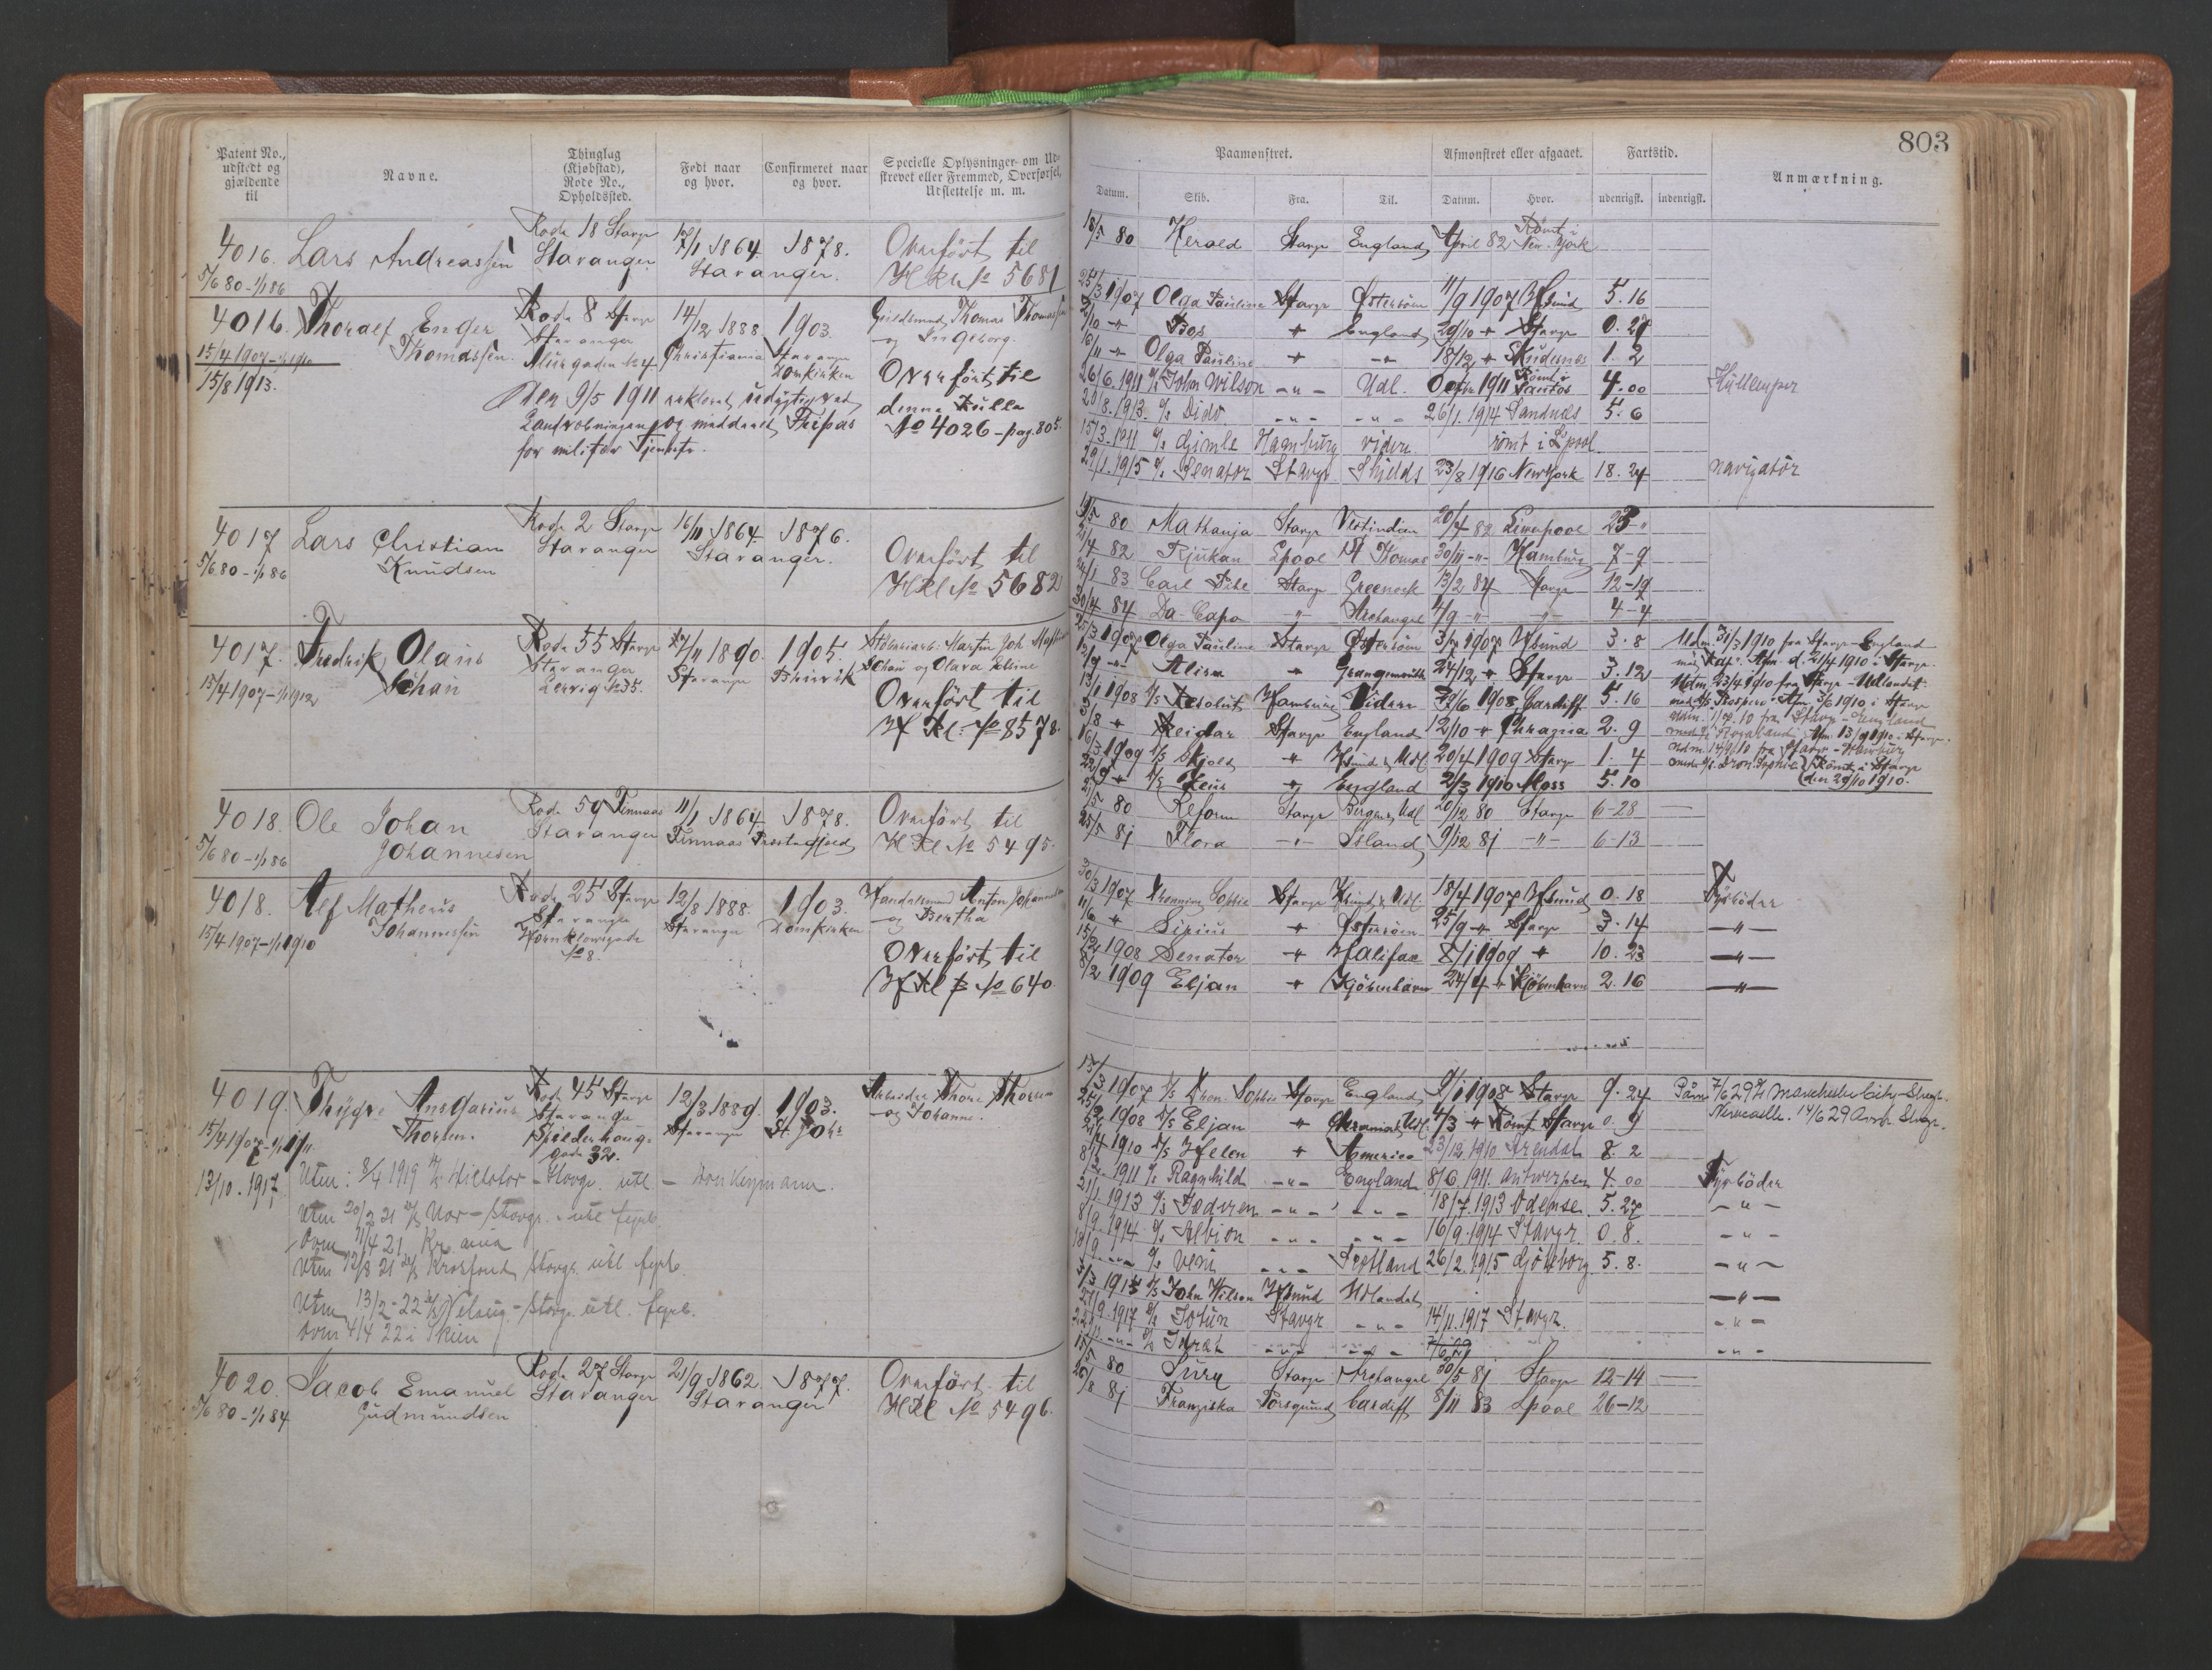 803
Patent No., udstedt og gjældende til
Navne.
Thinglag (Kjøbstad), Rode No., Opholdssted.
Født naar og hvor.
Confirmeret naar og hvor.
Specielle Oplysninger om Udskrevet eller Fremmed, Overførsel, Udslettelse m. m.
Paamønstret.
Datum. Skib. Fra. Til.
Afmønstret eller afgaaet.
Datum. Hvor.
Fartstid.
udenrigst. indenrigst.
Anmærkning.
4016. Lars Andreassen
5/6 80 - 1/1 86
Rode 18 Stavgr
Stavanger
17/1 1864. 1878.
Stavanger.
Overført til
HRl No 5681
18/5 80 Herald Stavgr England April 82 Rømt i New-York
4016. Thoralf Enger Thomassen.
15/4 1907 - 1/1 1910
15/8 1913.
Rode 8 Stavgr
Stavanger
14/12 1888. 1903.
Christiania Stavanger Domkirken
Guldsmed Thomas Thomassen
og Ingeborg.
Overført til
denne Rulle
No 4026 - pag. 805.
Den 9/5 1911 erklæret udygtig ved
for militær Tjeneste.
25/3 1907 Olga Pauline Stavgr Østersøen 11/9 1907 Hfsund 5. 16
2/10 -"- Bos " England 29/10 " Stavgr 0. 27
16/11 -"- Olga Pauline " -"- 18/12 " Skudenes 1. 2
26/6. 1911 D/S John Wilson -"- Udl. 1911 Rømt i Santos 4. 00
29/8. 1913. Dido -"- -"- 26/1. 1914 Sandnes 5. 6
15/3. 1911 Gimle Hamburg videre rømt i Lpool
29/1. 1915 Senator Stavgr Shields 23/8 1916 New York 18. 24 navigatør
4017 Lars Christian Knudsen
5/6 80 - 1/1 86
Rode 2 Stavgr
Stavanger
16/11 1864. 1876.
Stavanger.
Overført til
HRl No 5682
19/5 80 Mathanja Stavgr Vestindien 20/4 82 Liverpool 23 "
21/4 82 Rjukan Lpool St Thomas 30/11 -"- Hamburg 7-9
24/1 83 Carl Pihl Stavgr Greenock 13/2 84 Stavgr 12-19
30/4 84 Da-Capo -"- Archangel 4/9 -"- -"- 4-4
4017. Fredrik Olaus Schau
15/4 1907 - 1/1 1912
Rode 55 Stavgr
Stavanger
Lervig No 35.
27/11 1890. 1905.
Stavanger
Martin Joh
Schau og Olava
Overført til
HRl. No 8578.
25/3 1907 Olga Pauline Stavgr Østersøen 3/7 1907 Hfsund 3. 8
12/9 -"- Alisa " Grangemouth 24/12 " Stavgr 3. 12
13/1 1908 D/S Resolut Hamburg Videre 1908 Cardiff 5. 16
3/8 " Reidar Stavgr England 12/10 " Chragna 2. 9
16/3 1909 D/S Skjold " 20/4 1909 Stavgr 1. 4
22/9 " D/S Zeus " England 2/3 1910 Moss 5. 10
Udm. 31/3 1910 fra Stavgr - England
Afm. d. 21/4 1910 i Stavgr.
Udm. 23/4 1910 fra Stavgr - Udlandet
med D/S Prospero Afm. 3/6 1910 i Stavgr
Udm. 1/7. 10 fra Stavgr - England
Afm 13/9 1910 Stavgr.
Udm. 14/9 10 fra Stavgr - Hamburg
med D/S Dron. Sophie Rømt i Stavgr
den 29/10 1910.
4018. Ole Johan Johannesen
5/6 80 - 1/1 86
Rode 59 Finnaas
Stavanger
11/1 1864 1878.
Finnaas Præstegjeld
Overført til
HRl No 5495.
2/5 80 Reform Stavgr Bergen & Udl. 20/12 80 Stavgr 6-28
25/5 81 Flora -"- Island 9/12 81 -"- 6-13
4018. Alf Matheus Johannessen
15/4 1907 - 1/1 1910
Rode 25 Stavgr
Stavanger
No 8.
12/8 1888. 1903.
Stavanger Domkirken
Handelsmand Anton Johannessen
og Bertha
Overført til
HRl B No 640.
30/3 1907 Dronning Sophie Stavgr 18/4 1907 Hfsund 0. 18 Fyrbøder
11/6 " Sirius " Østersøen 25/9 -"- Stavgr 3. 14 -"-
15/2 1908 Senator " Halifax 8/1 1909 " 10. 23 -"-
8/2 1909 Eljan " Kjøbenhavn 24/4 " Kjøbenhavn 2. 16 -"-
4019. Thygve Ansgarius Thorsen.
15/4 1907 - 1/1 1911
13/10. 1917,
Rode 45 Stavgr
Stavanger
Spilderhaugsgade 32.
12/3 1889. 1903.
Stavanger St Johs
Arbeider Thore Thorsen
og Johanne.
Utm: 8/4 1919 Stavgr. utl - Donkeymann.
Utm 20/2 21 Nor - Stavgr. utl fyrb.
Avm 11/4 21 Kr.ania
Utm 12/8 21 D/S Krosfond Stavgr utl fyrb.
Utm 13/2 - 22 Stavgr utl. fyrb.
Avm 4/4 22 i Skien
13/3 1907 D/S Dron. Sophie Stavgr England 9/1 1908 Stavgr 9. 24
25/2 1908 D/S Eljan " 4/3 " Rømt Stavgr 0. 9
25/4 1910 D/S Helen " America 23/12. 1910 Arendal 8. 2
1911 Ragnhild -"- England 8/6. 1911. Antwerpen 4. 00 Fyrbøder
21/1. 1913 Jædren -"- -"- 18/7. 1913 Odense 5. 27 -"-
8/9. 1914 Albion -"- -"- 16/9. 1914 Stavgr. 0. 8. -"-
18/9 -"- Veni -"- Skotland 26/2. 1915 Gjøteborg 5. 8. -"-
3/3 1915 D/S John Wilson Hfsund Udlandet -"-
21/9. 1917 Jotun Stavgr -"- 14/11. 1917 Stavgr. -"-
22/11 -"- Idræt -"- -"- -"-
7/6 29 Manchester City - Stavgr.
Newcastle. 14/6 29 Avm Stavgr.
4020. Jacob Emanuel Gudmundsen
5/6 80 - 1/1 84
Rode 27 Stavgr
Stavanger
21/9 1862. 1877.
Stavanger
Overført til
HRl No 5496.
15/5 80 Sury Stavgr Archangel 30/5 81 Stavgr 12-14
26/8 81 Franziska Porsgrund Cardiff 8/11 83 Lpool 26-12